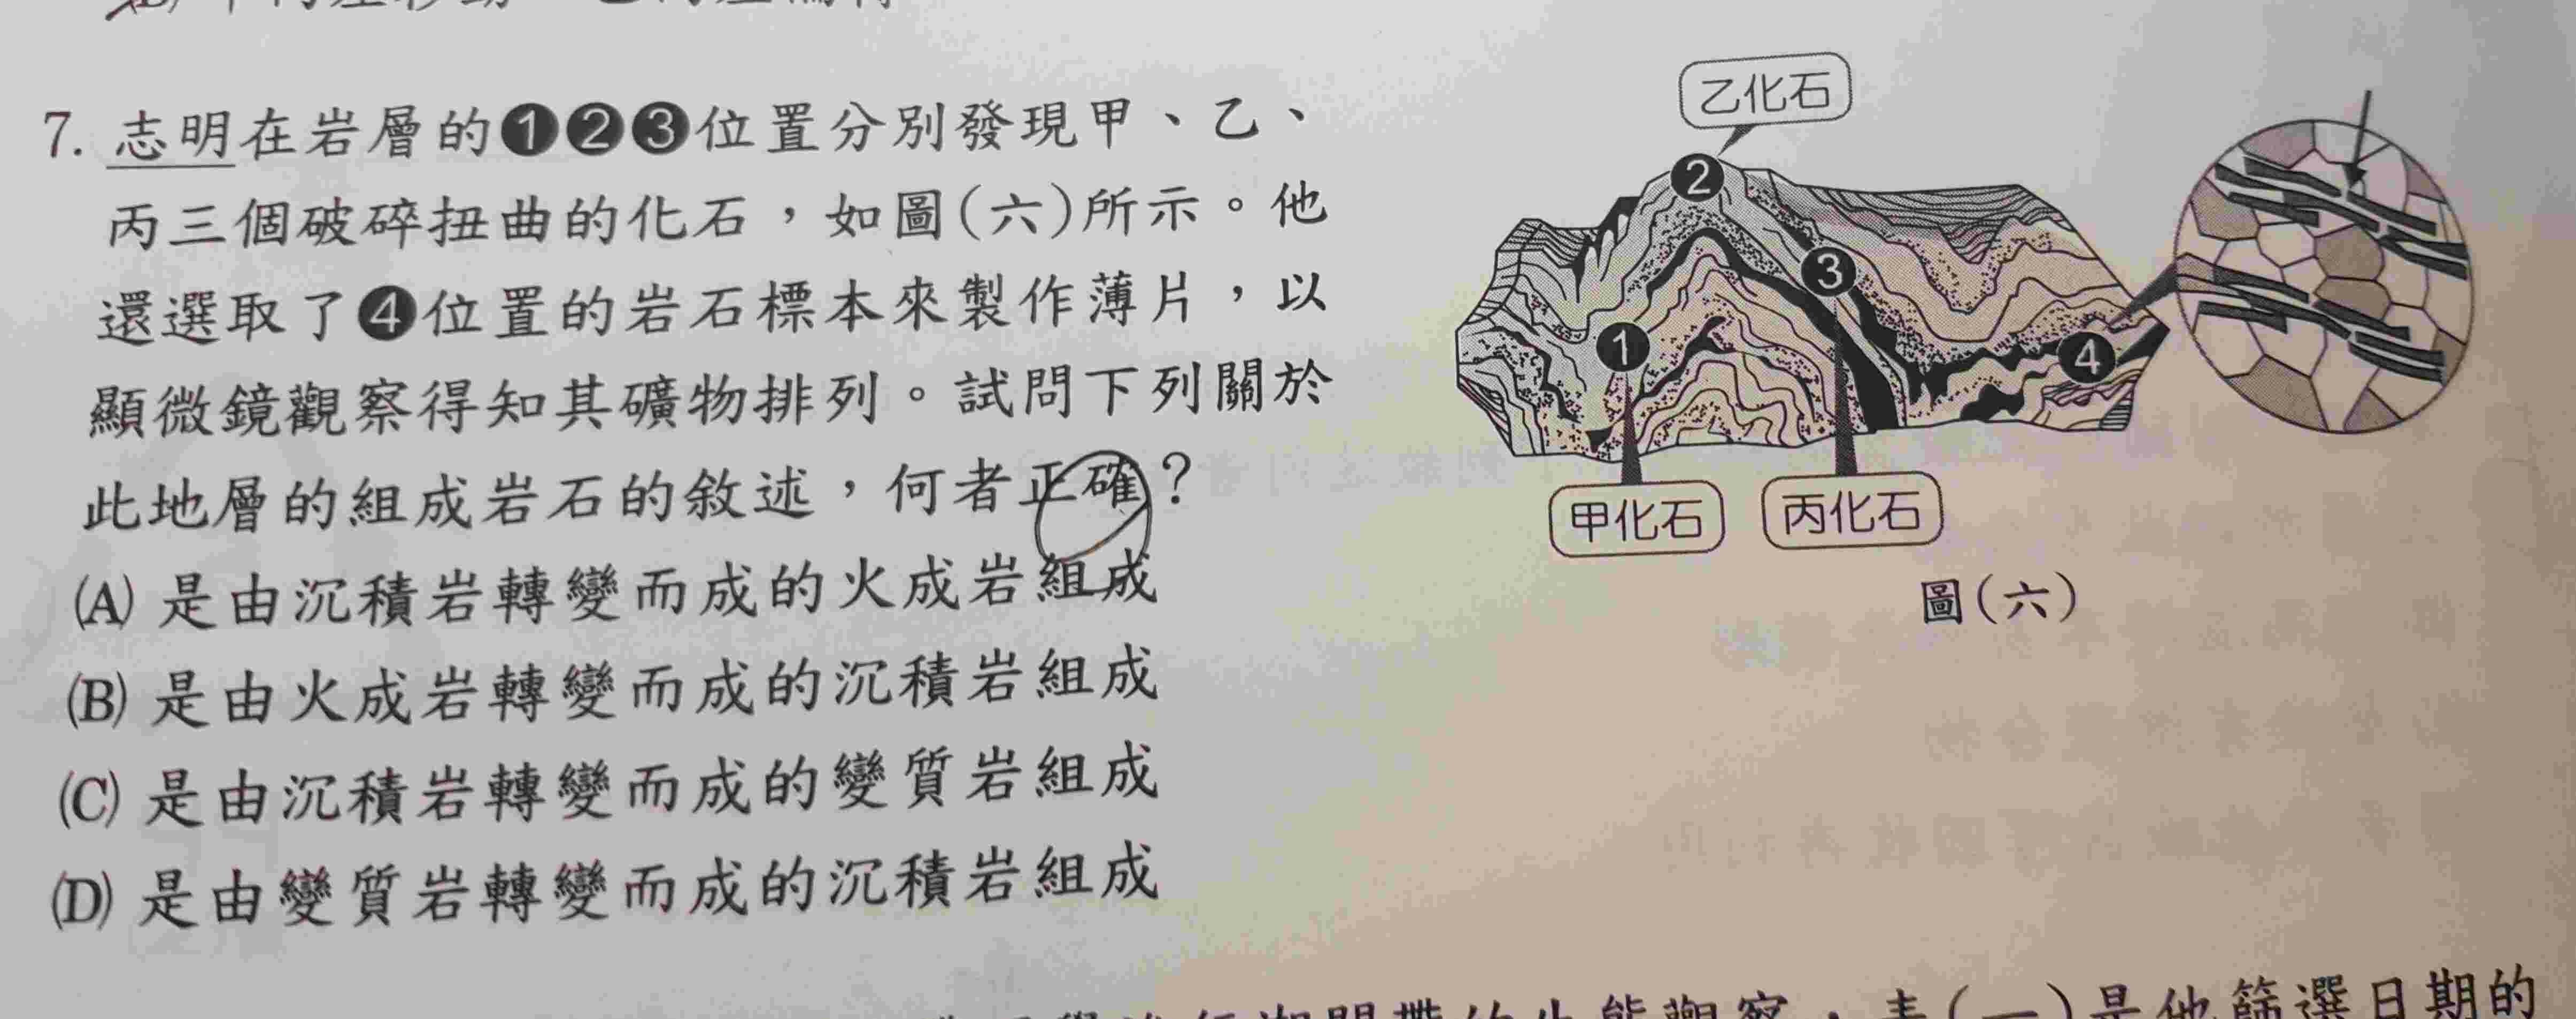 7. 志明在岩層的❶❷❸位置分別發現甲、乙、
丙三個破碎扭曲的化石，如圖(六)所示。他
還選取了❹位置的岩石標本來製作薄片，以
顯微鏡觀察得知其礦物排列。試問下列關於
此地層的組成岩石的敘述，何者正確？
(A) 是由沉積岩轉變而成的火成岩組成
(B) 是由火成岩轉變而成的沉積岩組成
(C) 是由沉積岩轉變而成的變質岩組成
(D) 是由變質岩轉變而成的沉積岩組成
乙化石
❷
❸
❶
❹
甲化石
丙化石
圖(六)
表(一)是他篩選日期的